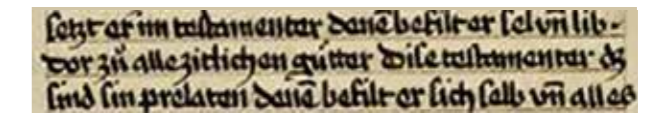 setzt er im testamenter den̄e befilt er sel vn̄ lib ·
dor zů alle zitlichen gůtter Dise testamenter dz
sind sin prelaten den̄e befilt er sich selb vn̄ alles